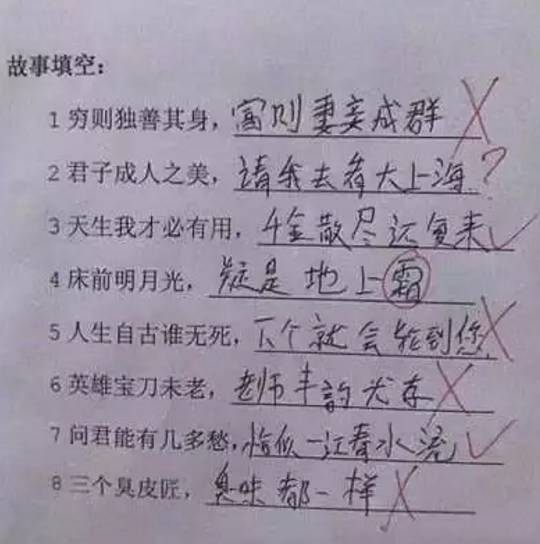 故事填空：
1 穷则独善其身，富则妻妾成群
2 君子成人之美，请我去看大上海
3 天生我才必有用，千金散尽还复来
4 床前明月光，疑是地上霜
5 人生自古谁无死，下个就会轮到您
6 英雄宝刀未老，老师丰韵尤存
7 问君能有几多愁，恰似一江春水流
8 三个臭皮匠，臭味都一样